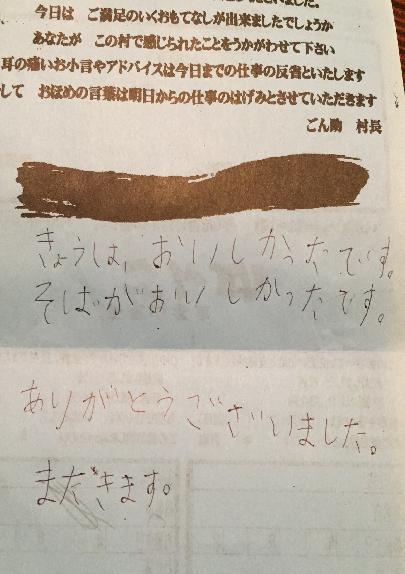 ました。
今日は ご満足のいくおもてなしが出来ましたでしょうか
あなたが この村で感じられたことをうかがわせて下さい
耳の痛いお小言やアドバイスは今日までの仕事の反省といたします
して おほめの言葉は明日からの仕事のはげみとさせていただきます
ごん助 村長
きょうは、おいしかったです。
そばがおいしかったです。
ありがとうございました。
まだきます。